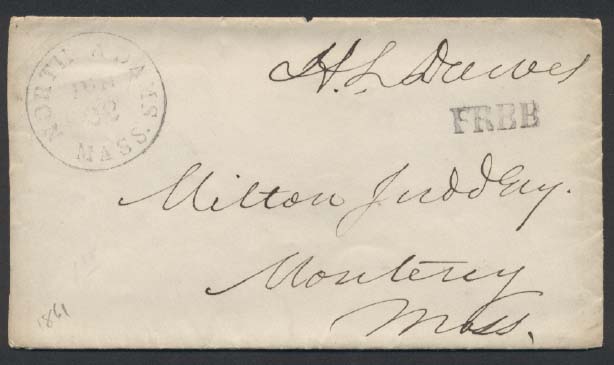 NORTH ADAMS MASS.
JUN
22
H. L. Dawes
FREE
Milton Judd Esq.
Monterey
Mass.
1861